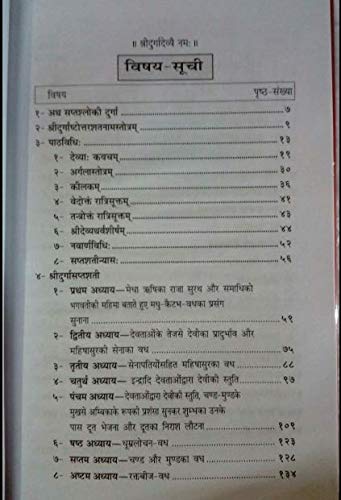 ॥ श्रीदुर्गादेव्यै नमः॥
विषय-सूची
विषय पृष्ठ-संख्या
१- अथ सप्तश्लोकी दुर्गा ७
२- श्रीदुर्गाष्टोत्तरशतनामस्तोत्रम् ९
३- पाठविधिः १३
१- देव्याः कवचम् १९
२- अर्गलास्तोत्रम् ३०
३- कीलकम् ३६
४- वेदोक्तं रात्रिसूक्तम् ४१
५- तन्त्रोक्तं रात्रिसूक्तम् ४३
६- श्रीदेव्यथर्वशीर्षम् ४४
७- नवार्णविधिः ५२
८- सप्तशतीन्यासः ५६
४- श्रीदुर्गासप्तशती
१- प्रथम अध्याय—मेधा ऋषिका राजा सुरथ और समाधिको
भगवतीकी महिमा बताते हुए मधु-कैटभ-वधका प्रसंग
सुनाना ५९
२- द्वितीय अध्याय—देवताओंके तेजसे देवीका प्रादुर्भाव और
महिषासुरकी सेनाका वध ७५
३- तृतीय अध्याय—सेनापतियोंसहित महिषासुरका वध ८८
४- चतुर्थ अध्याय—इन्द्रादि देवताओंद्वारा देवीकी स्तुति ९७
५- पंचम अध्याय—देवताओंद्वारा देवीकी स्तुति, चण्ड-मुण्डके
मुखसे अम्बिकाके रूपकी प्रशंसा सुनकर शुम्भका उनके
पास दूत भेजना और दूतका निराश लौटना १०९
६- षष्ठ अध्याय—धूम्रलोचन-वध १२३
७- सप्तम अध्याय—चण्ड और मुण्डका वध १२८
८- अष्टम अध्याय—रक्तबीज-वध १३४